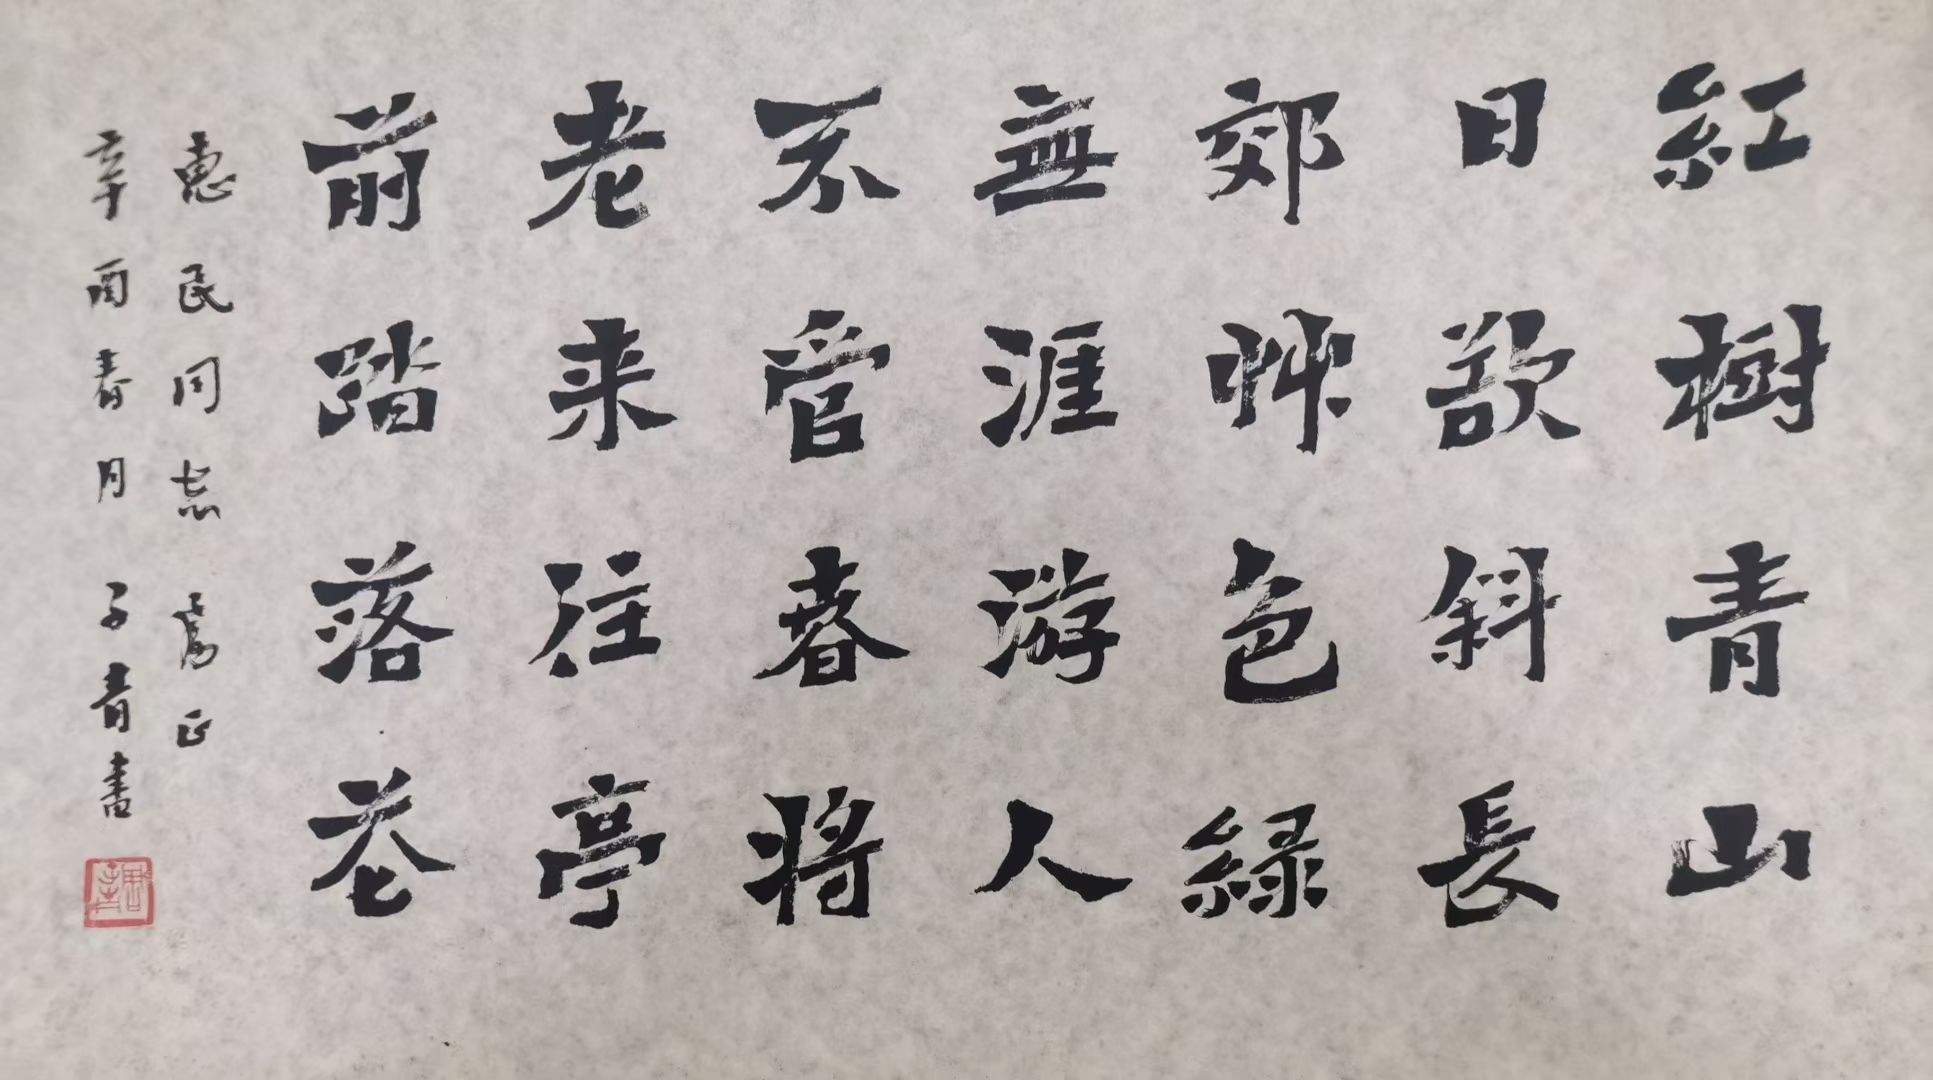 紅樹青山
日欲斜長
郊艸色綠
無涯游人
不管春將
老来往亭
前踏落花
惠民同志属正
辛酉春月子青書